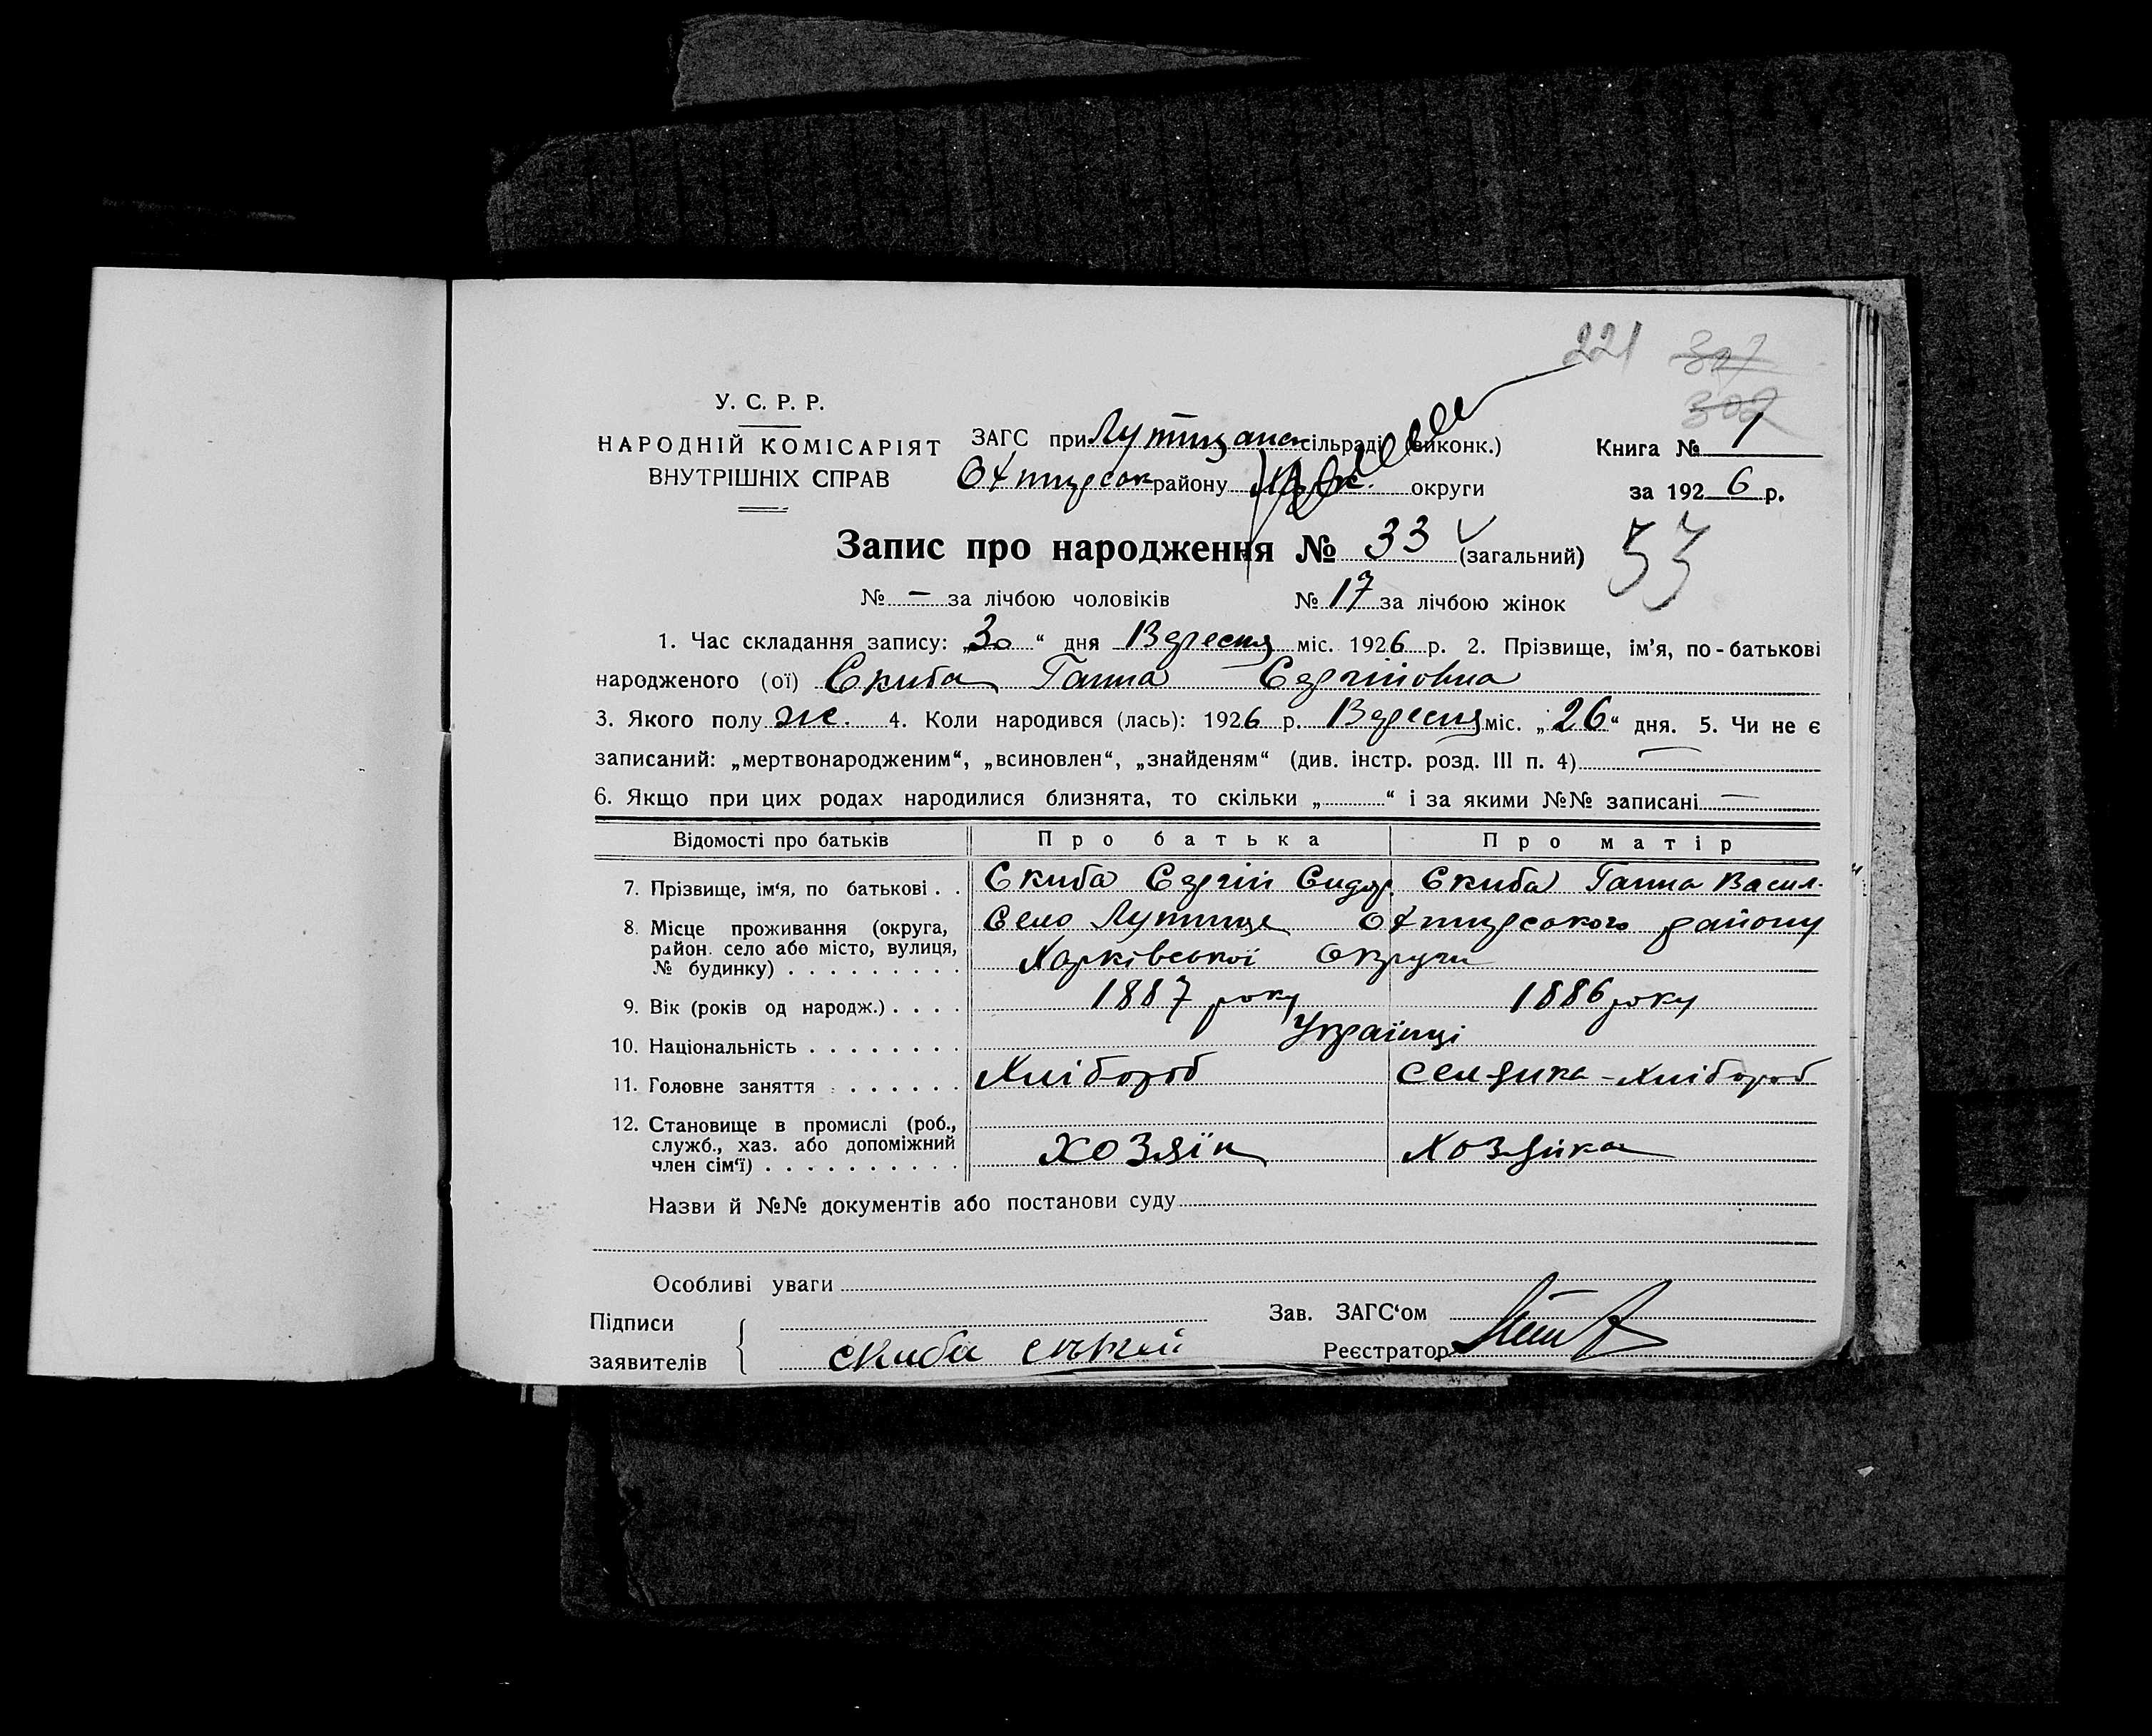 221 307
302
У. С. Р. Р.
НАРОДНІЙ КОМІСАРІЯТ
ВНУТРІШНІХ СПРАВ
ЗАГС при Лутищанск сільраді (виконк.)
Охтирсок району Харк. округи
Книга № 1
за 1926 р.
Запис про народження № 33 (загальний) 53
№ — за лічбою чоловіків № 17 за лічбою жінок
1. Час складання запису: „30“ дня Вересня міс. 1926 р. 2. Прізвище, ім'я, по-батькові
народженого (ої) Скиба Ганна Сергіиовна
3. Якого полу же. 4. Коли народився (лась): 1926 р. Вересня міс. „26“ дня. 5. Чи не є
записаний: „мертвонародженим“, „всиновлен“, „знайденям“ (див. інстр. розд. III п. 4) —
6. Якщо при цих родах народилися близнята, то скільки „ “ і за якими №№ записані —
Відомості про батьків Про батька Про матір
7. Прізвище, ім'я, по батькові . . Скиба Сергіи Сидор. Скиба Ганна Васил.
8. Місце проживання (округа, район. село або місто, вулиця, № будинку) . . . . . . . . . Село Лутище Охтирського району
Харківської Округи
9. Вік (років од народж.) . . . . 1887 року 1886 року
10. Національність . . . . . . . . Українці
11. Головне заняття . . . . . . . Хлібороб селянка-хлібороб
12. Становище в промислі (роб., служб., хаз. або допоміжний член сім'ї) . . . . . . . . . . хозяїн хозяйка
Назви й №№ документів або постанови суду
Особливі уваги
Підписи
заявителів скиба сергей
Зав. ЗАГС'ом
Реєстратор